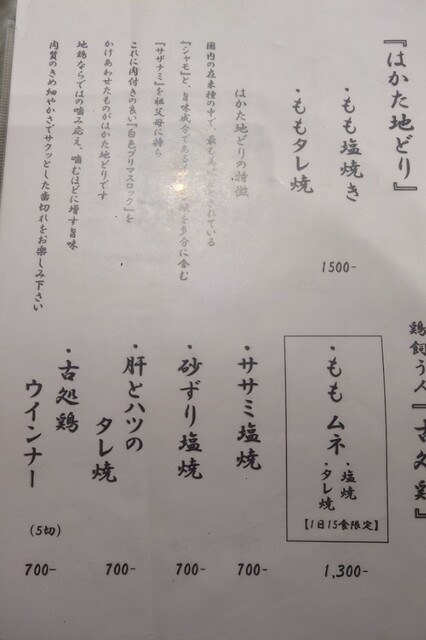 『はかた地どり』
・もも塩焼き
・ももタレ焼
1500-
はかた地どりの特徴
国内の在来種の中で、最も
されている
『シャモ』と、旨味成分である
を多分に含む
『サザナミ』を祖父母に持ち
これに肉付きの良い『白色プリマスロック』を
かけあわせたものがはかた地どりです
地鶏ならではの噛み応え、噛むほどに増す旨味
肉質のきめ細やかさでサクッとした歯切れをお楽しみ下さい
鶏飼う人『古処鶏』
・もも ムネ
・塩焼
・タレ焼
【1日15食限定】
1,300-
・ササミ塩焼
700-
・砂ずり塩焼
700-
・肝とハツの
タレ焼
700-
・古処鶏
ウインナー
(5切)
700-